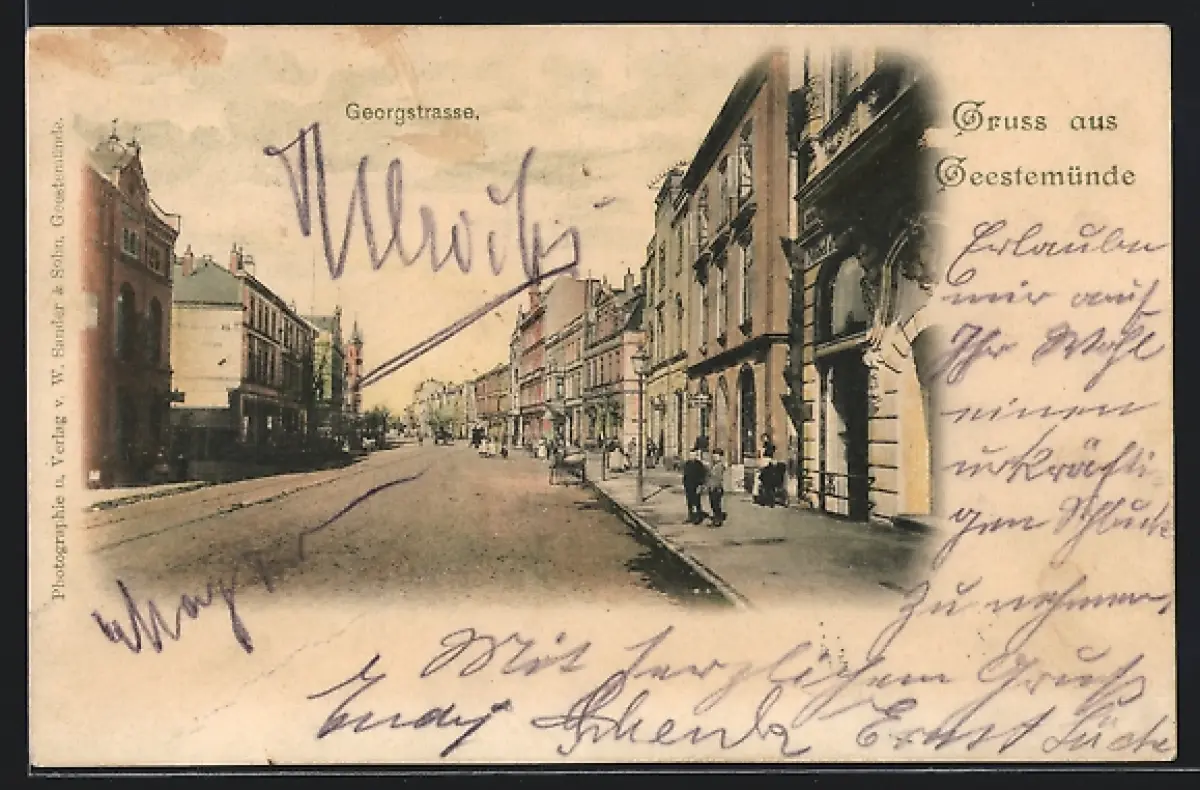 Georgstrasse.
Gruss aus
Geestemünde
Photographie u. Verlag v. W. Sander & Sohn, Geestemünde.
Erlaube
mir auf
Ihr Wohl
einen
urkräfti-
gen Schluck
zu nehmen,
Mit herzlichem Gruß
Schenk Ernst